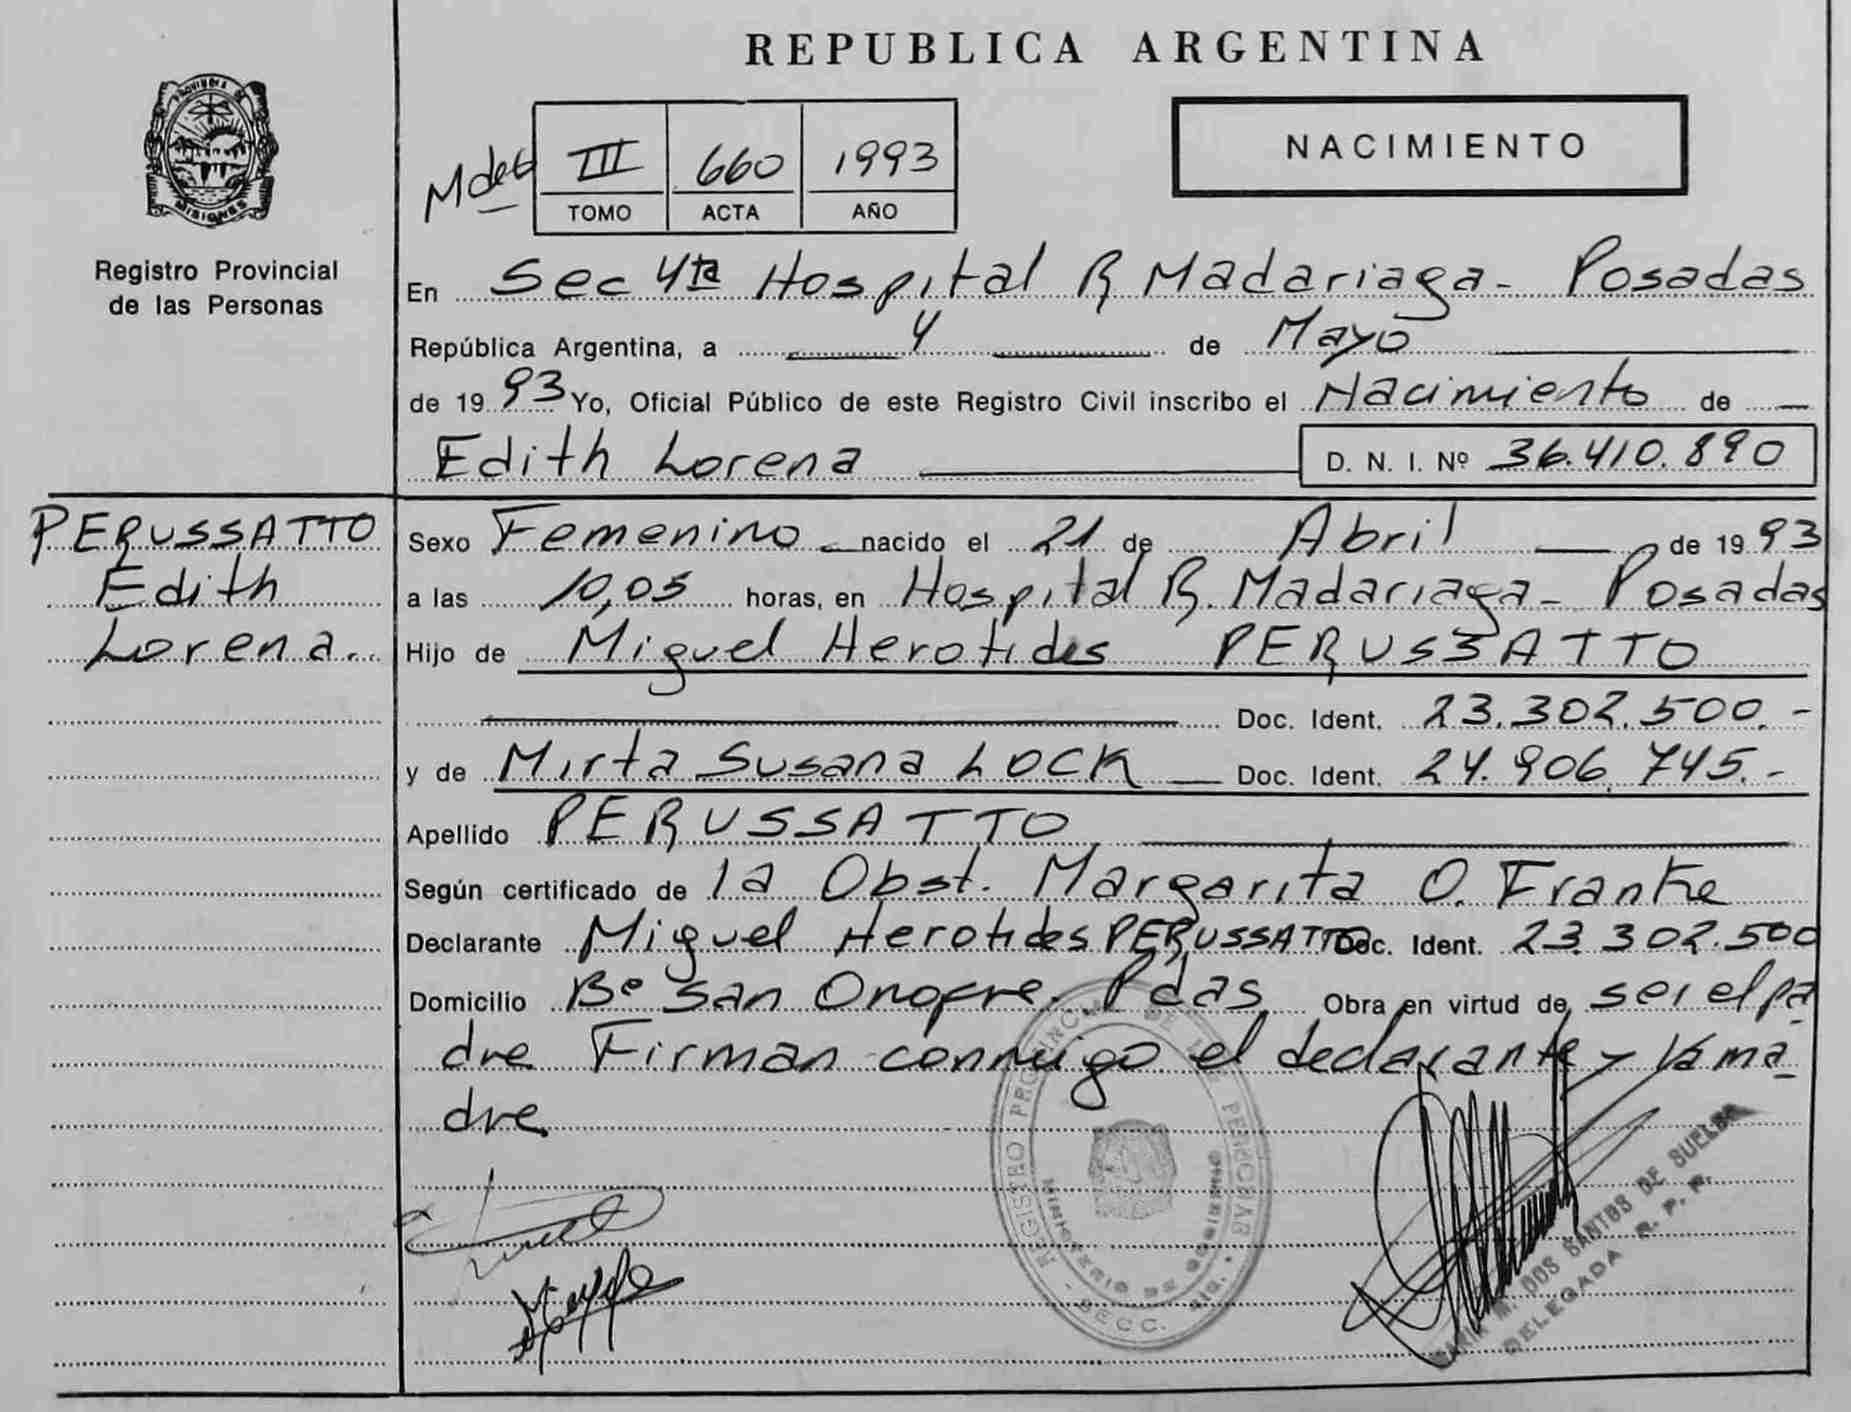 REPUBLICA ARGENTINA
PROVINCIA DE
MISIONES
Registro Provincial
de las Personas
Mdeb III 660 1993
TOMO ACTA AÑO
NACIMIENTO
En Sec 4ta Hospital R Madariaga - Posadas
República Argentina, a 4 de Mayo
de 1993 Yo, Oficial Público de este Registro Civil inscribo el Nacimiento de
Edith Lorena D. N. I. Nº 36.410.890
PERUSSATTO
Edith
Lorena.
Sexo Femenino nacido el 21 de Abril de 1993
a las 10,05 horas, en Hospital R. Madariaga - Posadas
Hijo de Miguel Herotides PERUSSATTO
Doc. Ident. 23.302.500.-
y de Mirta Susana LOCK Doc. Ident. 24.906.745.-
Apellido PERUSSATTO
Según certificado de la Obst. Margarita O. Franke
Declarante Miguel Herotides PERUSSATTO Doc. Ident. 23.302.500
Domicilio Bº San Onofre. Pdas Obra en virtud de ser el pa
dre Firman conmigo el declarante y la ma-
dre
REGISTRO PROVINCIAL DE LAS PERSONAS
MINISTERIO DE GOBIERNO
SECC.
M. DOS SANTOS DE
DELEGADA R. P. P.